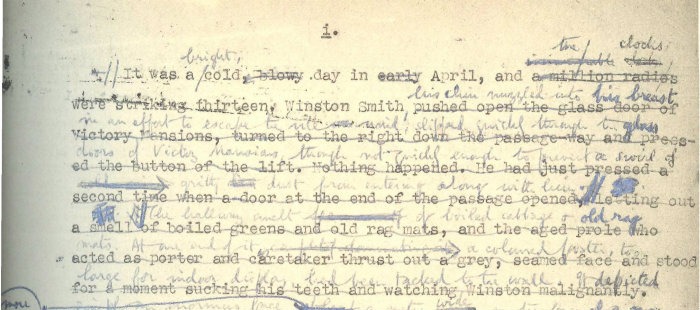 i.
the clocks
bright, innumerable
It was a cold, blowy day in early April, and a million radios
his chin nuzzled into his breast
were striking thirteen. Winston Smith pushed open the glass door of
in an effort to escape the vile wind, slipped quickly through the glass
Victory Mansions, turned to the right down the passage-way and press-
doors of Victory Mansions, though not quickly enough to prevent a swirl of
ed the button of the lift. Nothing happened. He had just pressed a
gritty dust from entering along with him.
second time when a door at the end of the passage opened, letting out
The hallway smelt of boiled cabbage & old rag
a smell of boiled greens and old rag mats, and the aged prole who
mats. At one end of it, a coloured poster, too
acted as porter and caretaker thrust out a grey, seamed face and stood
large for indoor display, had been tacked to the wall. It depicted
for a moment sucking his teeth and watching Winston malignantly.
more simply an enormous face, wide